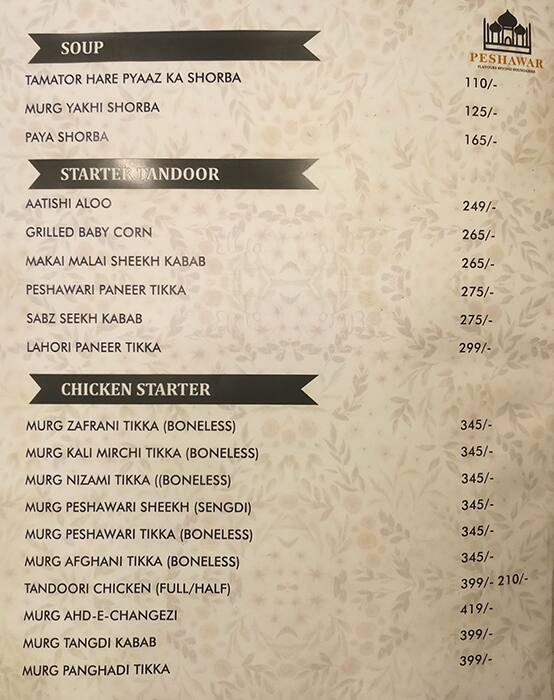 PESHAWAR
FLAVOURS BEYOND BOUNDARIES
SOUP
TAMATOR HARE PYAAZ KA SHORBA 110/-
MURG YAKHI SHORBA 125/-
PAYA SHORBA 165/-
STARTER TANDOOR
AATISHI ALOO 249/-
GRILLED BABY CORN 265/-
MAKAI MALAI SHEEKH KABAB 265/-
PESHAWARI PANEER TIKKA 275/-
SABZ SEEKH KABAB 275/-
LAHORI PANEER TIKKA 299/-
CHICKEN STARTER
MURG ZAFRANI TIKKA (BONELESS) 345/-
MURG KALI MIRCHI TIKKA (BONELESS) 345/-
MURG NIZAMI TIKKA ((BONELESS) 345/-
MURG PESHAWARI SHEEKH (SENGDI) 345/-
MURG PESHAWARI TIKKA (BONELESS) 345/-
MURG AFGHANI TIKKA (BONELESS) 345/-
TANDOORI CHICKEN (FULL/HALF) 399/- 210/-
MURG AHD-E-CHANGEZI 419/-
MURG TANGDI KABAB 399/-
MURG PANGHADI TIKKA 399/-